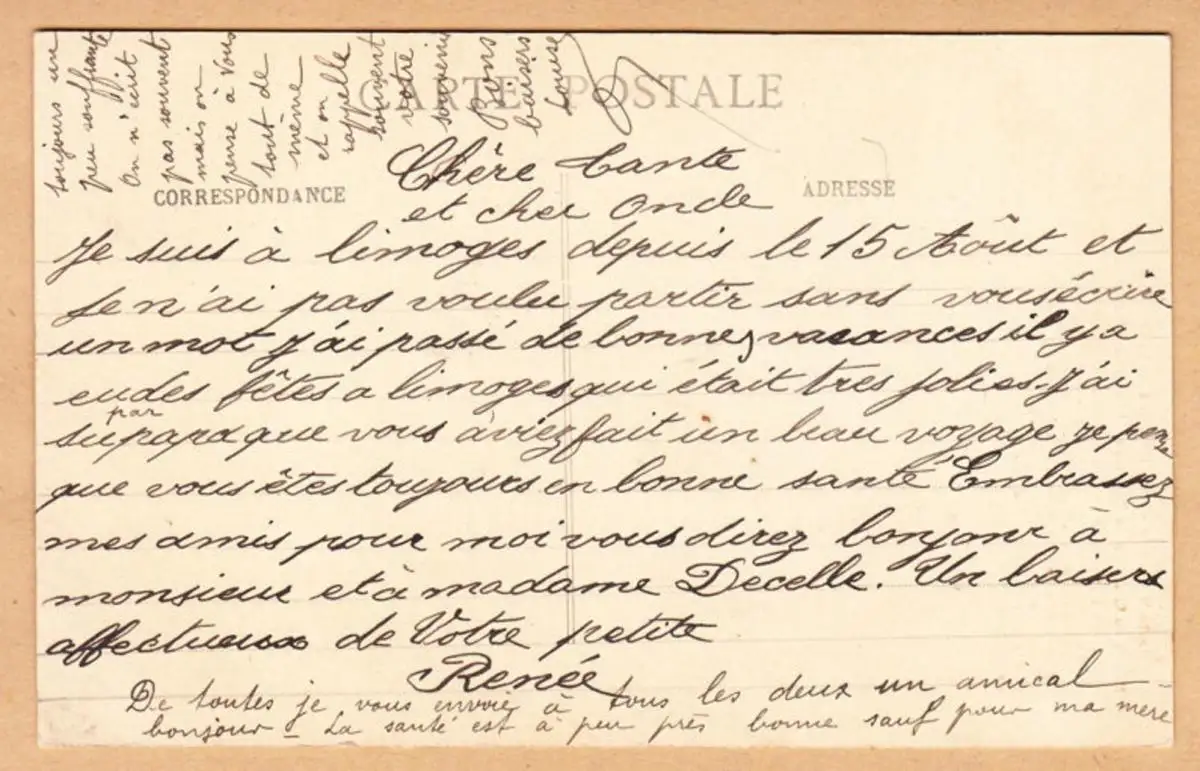 CARTE POSTALE
CORRESPONDANCE
ADRESSE
Chère Tante
et cher Oncle
Je suis à limoges depuis le 15 Août et
Je n'ai pas voulu partir sans vous écrire
un mot J'ai passé de bonnes vacances il y a
eu des fêtes a limoges qui était tres jolies. J'ai
su par papa que vous àviez fait un beau voyage je pense
que vous êtes toujours en bonne santé Embrassez
mes amis pour moi vous direz bonjour à
monsieur et à madame Decelle. Un baisers
affectueux de Votre petite
Renée
De toutes je vous envoie à tous les deux un amical
bonjour – La santé est à peu près bonne sauf pour ma mère
toujours un
peu souffrante
On n'écrit
pas souvent
mais on
pense à Vous
tout de
même
et on
rappelle
souvent
votre
souvenir
Bons
baisers
Louise